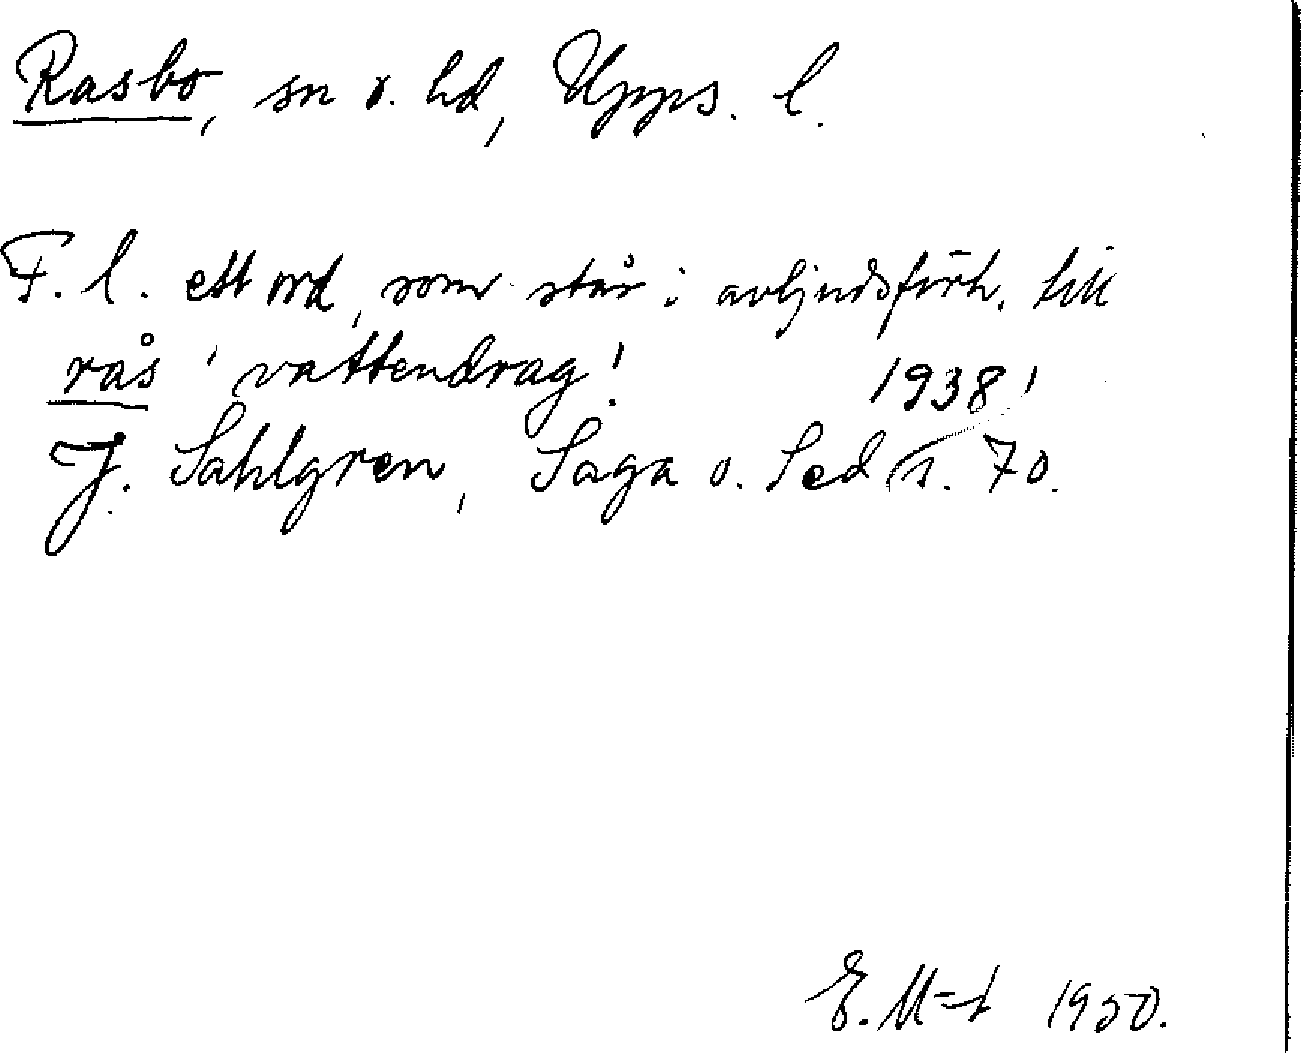 Rasbo, sn o. hd, Upps. l.
F. l. ett ord, som står i avljudsförh. till
rås 'vattendrag'.
1938,
J. Sahlgren, Saga o. Sed s. 70.
E. M-t 1950.